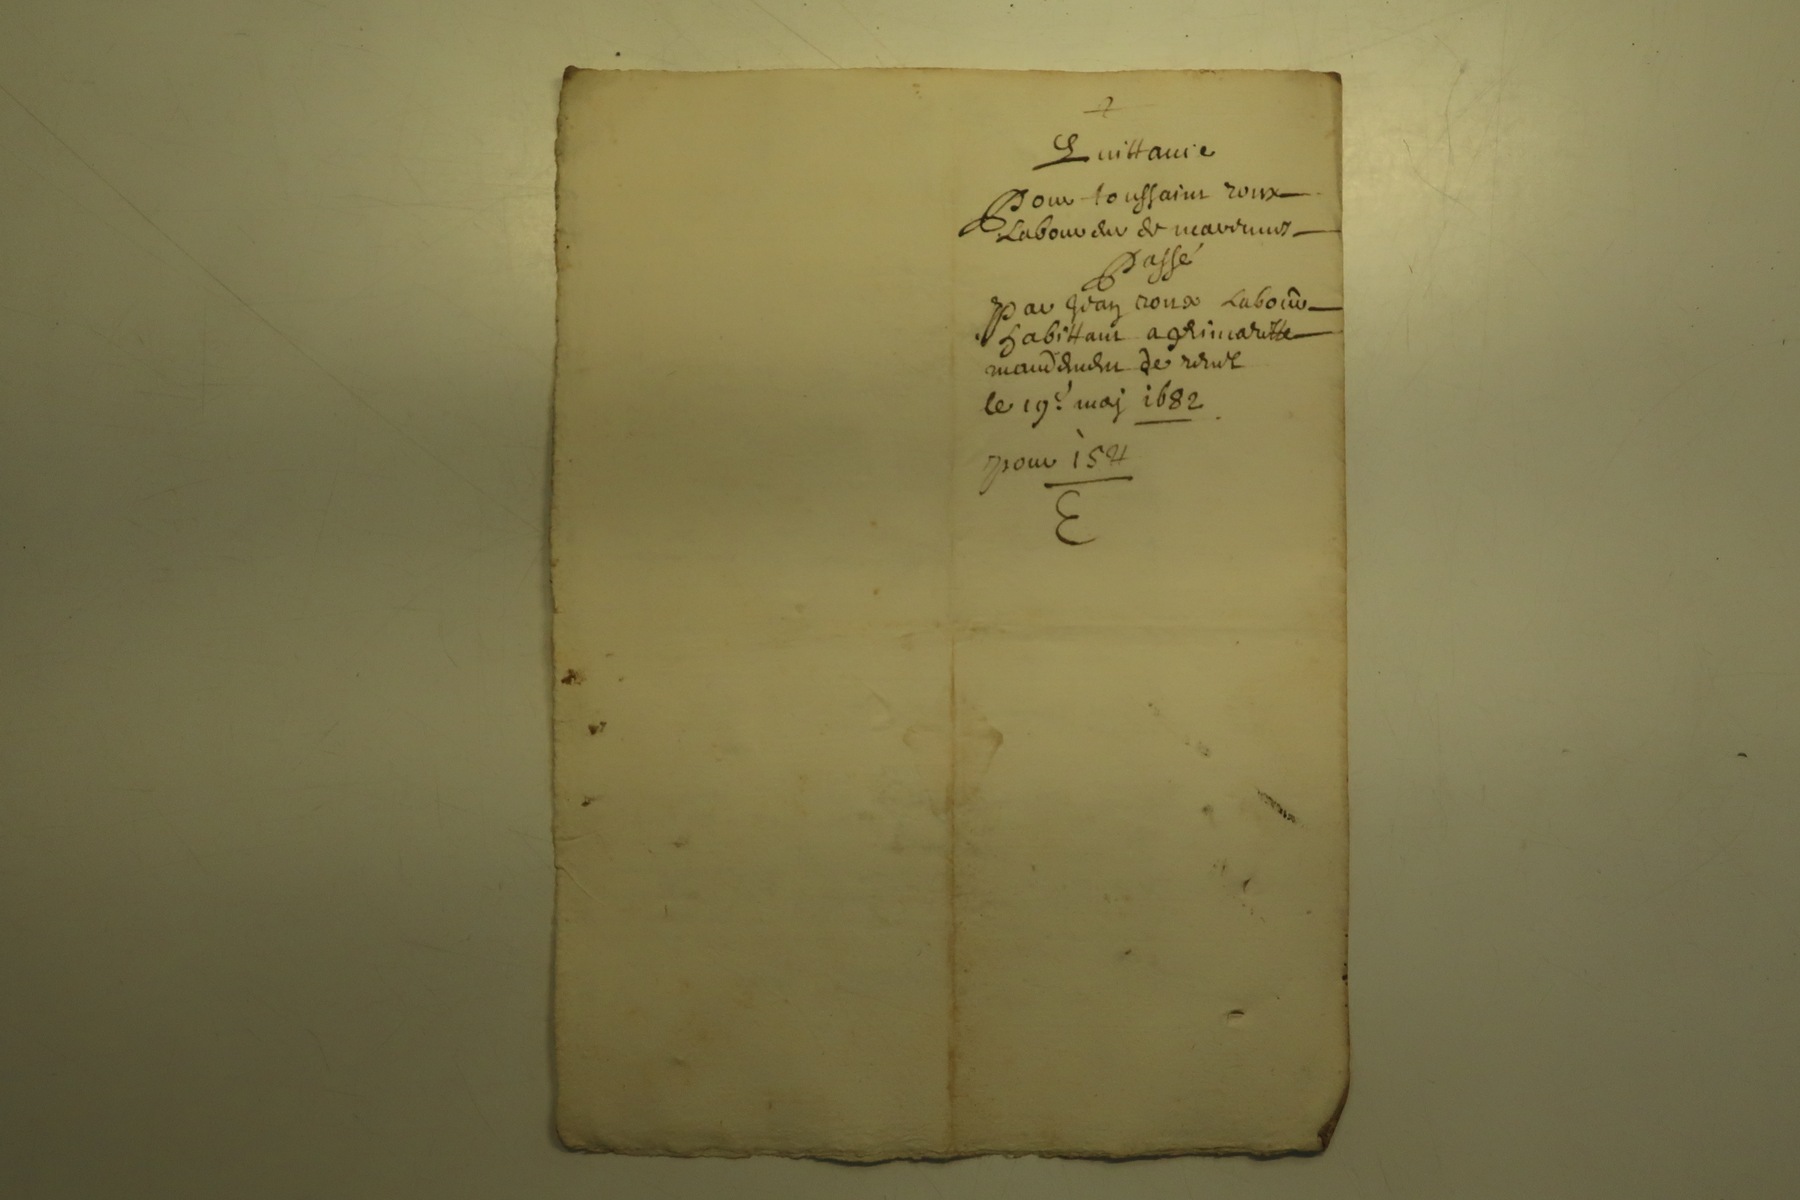 Quittance
Pour toussaint roux
Laboureur de
Passé
Par Jean roux Labour
habittant a grimarette
mandement de
le 19e. maj 1682
pour 15 ₶
E